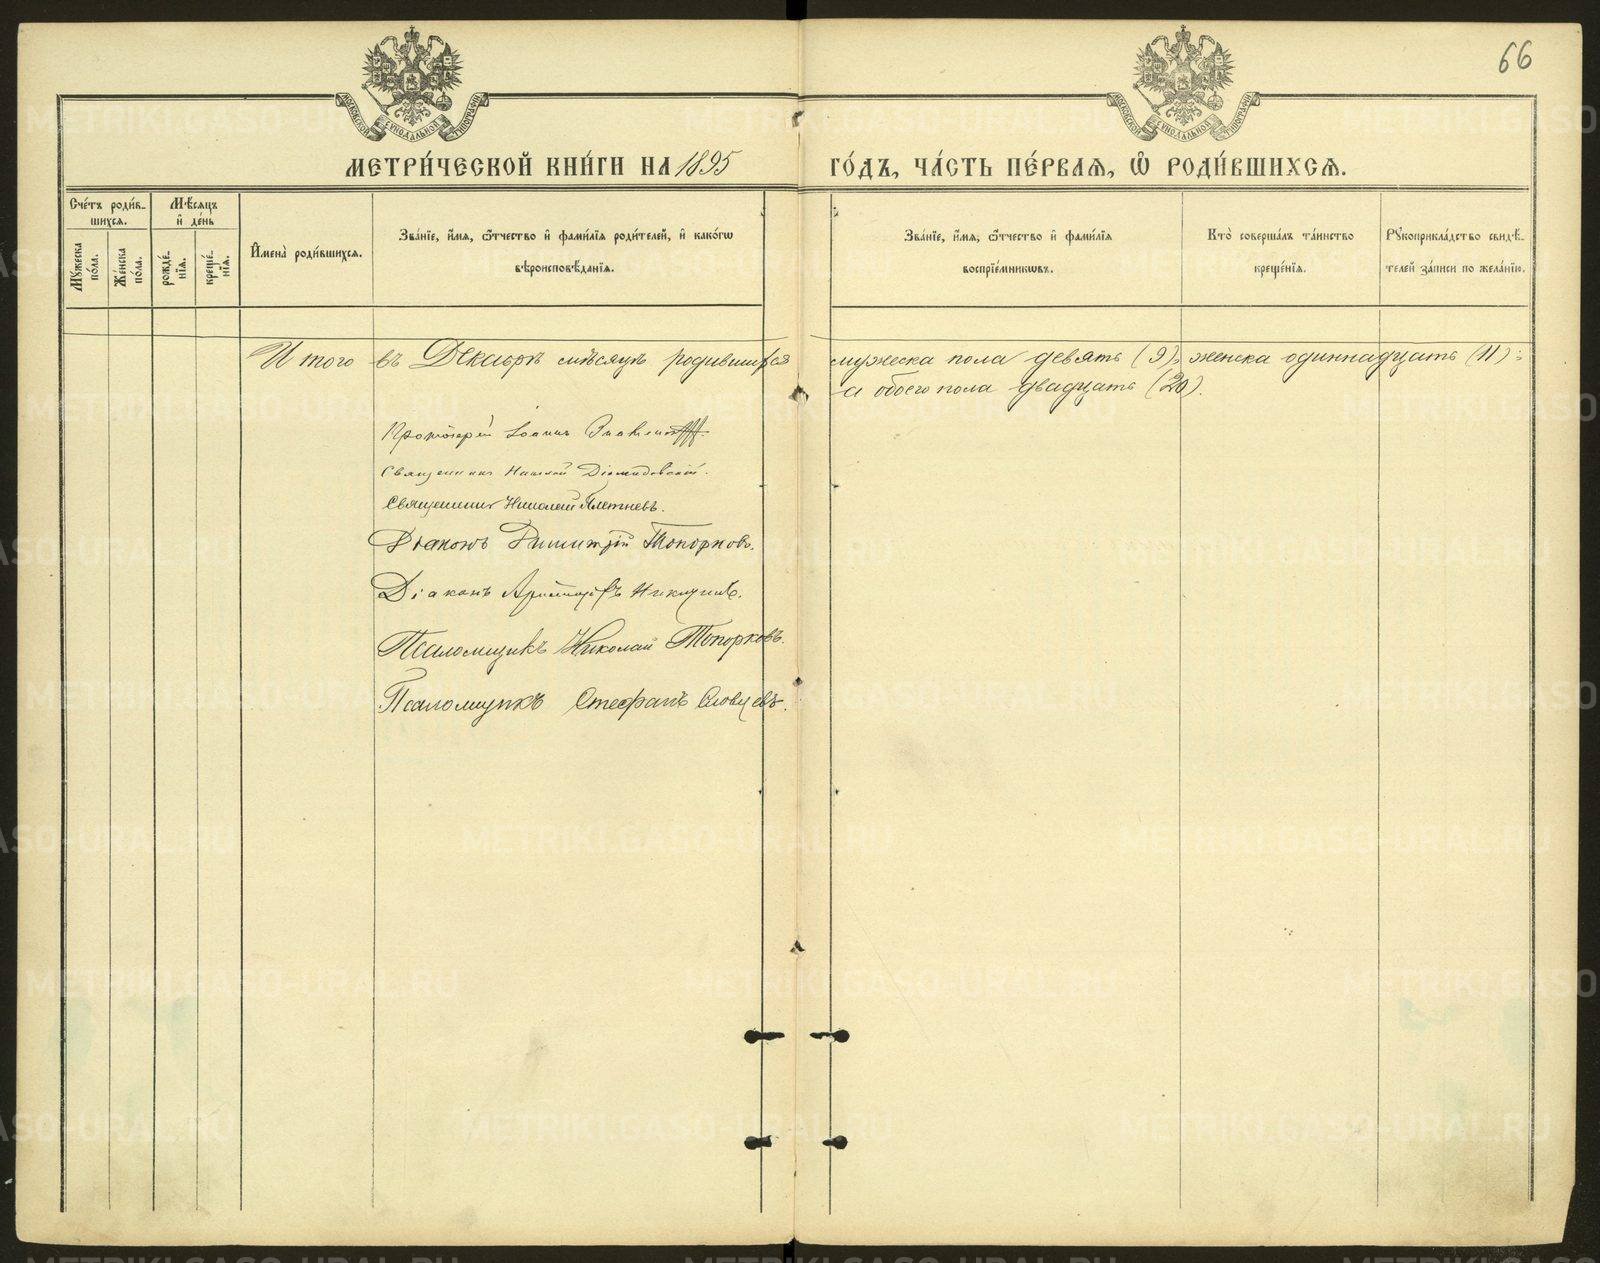 66
МОСКОВСКОЙ СѴНОДАЛЬНОЙ ТИПОГРАФІИ
МОСКОВСКОЙ СѴНОДАЛЬНОЙ ТИПОГРАФІИ
МЕТРИ́ЧЕСКОЙ КНИ́ГИ НА 1895 ГО́ДЪ, ЧА́СТЬ ПЕ́РВАЯ, Ѽ РОДИ́ВШИХСЯ.
Сче́тъ роди́в-
шихся.
Мѣ́сяцъ
и҆ де́нь
Мꙋ́жеска
по́ла.
Же́нска
по́ла.
рожде́-
нїя.
креще́-
нїя.
И҆мена̀ роди́вшихся.
Зва́нїе, и҆́мя, ѻ҆́тчество и҆ фами́лїя роди́телей, и҆ како́гѡ
вѣроисповѣ́данїя.
Зва́нїе, и҆́мя, ѻ҆́тчество и҆ фами́лїя
воспрїе́мникѡвъ.
Кто̀ соверша́лъ та́инство
креще́нїя.
Рꙋкоприкла́дство свидѣ́-
телей за́писи по жела́нїю.
Итого въ Декабрѣ мѣсяцѣ родившихся мужеска пола девять (9), женска одиннадцать (11);
а обоего пола двадцать (20).
Протоіерей Іоаннъ
Священникъ Діомидовскій.
Священникъ Николай Плетневъ.
Діаконъ Димитрій Топорковъ.
Діаконъ Никитинъ.
Псаломщикъ Николай Топорковъ.
Псаломщикъ Стефанъ Словцевъ.
METRIKI.GASO-URAL.RU